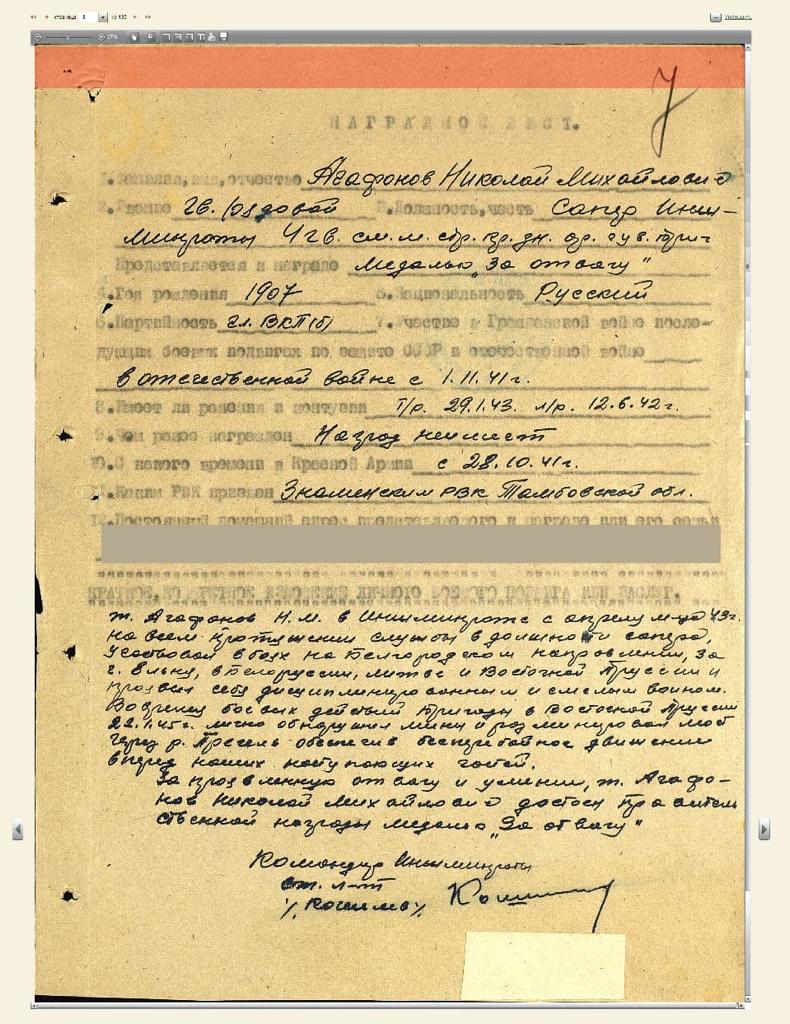 страница 8 из 132
Уменьшить
7
НАГРАДНОЙ ЛИСТ.
1. Фамилия, имя, отчество Агафонов Николай Михайлович
2. Звание гв. рядовой 3. Должность, часть Сапер Инж-
минроты 4 гв.
Представляется к награде медалью "За отвагу"
4. Год рождения 1907 5. Национальность Русский
6. Партийность чл. ВКП(б) 7. Участие в Гражданской войне после-
дующих боевых подвигах по защите СССР в отечественной войне
в отечественной войне с 1.11.41 г.
8. Имеет ли ранения и контузии т/р. 29.1.43. л/р. 12.6.42 г.
9. Чем ранее награжден Наград не имеет
10. С какого времени в Красной Армии с 28.10.41 г.
11. Каким РВК призван Знаменским РВК Тамбовской обл.
12. Постоянный домашний адрес представляемого к награде или его семьи
КРАТКОЕ, КОНКРЕТНОЕ ИЗЛОЖЕНИЕ ЛИЧНОГО БОЕВОГО ПОДВИГА ИЛИ ЗАСЛУГ.
т. Агафонов Н.М. в Инжминроте с апреля м-ца 43 г.
на всем протяжении службы в должности сапера,
участвовал в боях на Белгородском направлении, за
г. Ельня, в Белоруссии, Литве и Восточной Пруссии и
проявил себя дисциплинированным и смелым воином.
Во время боевых действий бригады в Восточной Пруссии
22.1.45 г. лично обнаружил мины и разминировал мост
через р. Прегель обеспечив бесперебойное движение
вперед наших наступающих частей.
За проявленную отвагу и умение, т. Агафо-
нов Николай Михайлович достоен правитель
ственной награды медалью "За отвагу"
Командир Инжминроты
ст. л-т